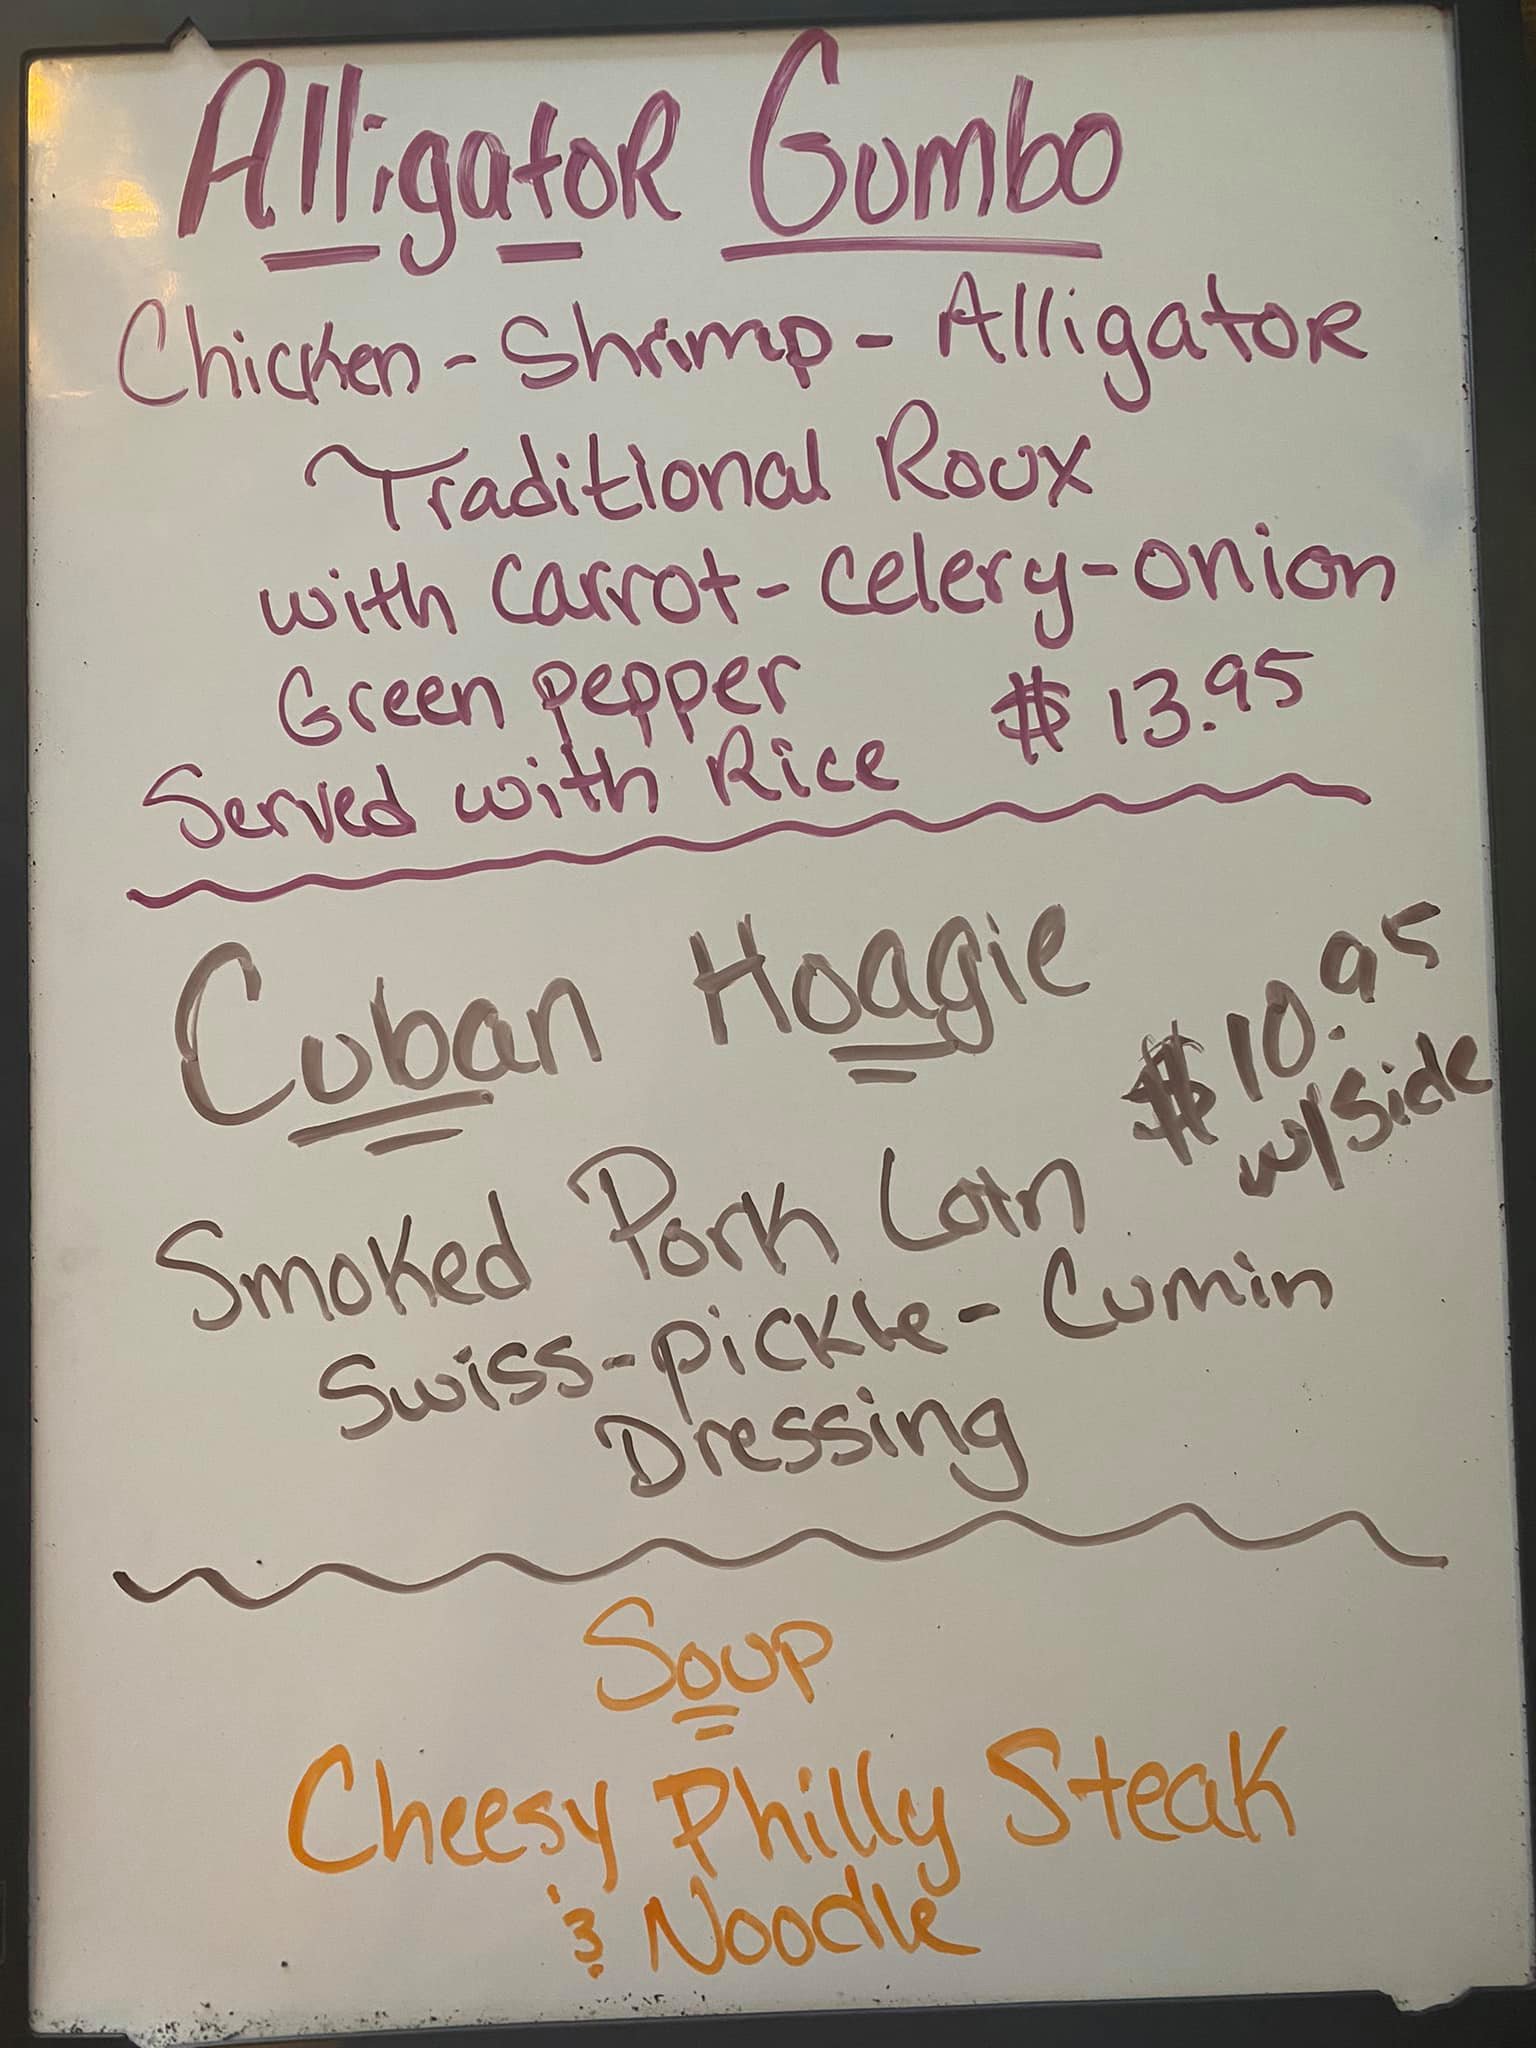 Alligator Gumbo
Chicken - Shrimp - Alligator
Traditional Roux
with carrot - celery - onion
Green pepper
$13.95
Served with Rice
Cuban Hoagie
$10.95
w/side
Smoked Pork Loin
Swiss - pickle - Cumin
Dressing
Soup
Cheesy Philly Steak
& Noodle